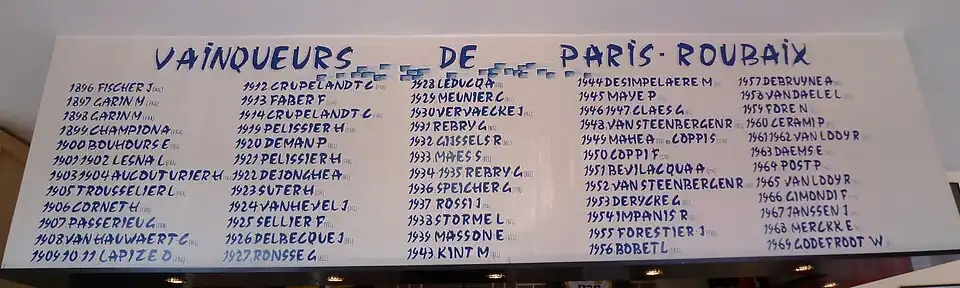 VAINQUEURS DE PARIS-ROUBAIX
1896 FISCHER J
1897 GARIN M
1898 GARIN M
1899 CHAMPION A
1900 BOUHOURS E
1901 1902 LESNA L
1903 1904 AUCOUTURIER H
1905 TROUSSELIER L
1906 CORNET H
1907 PASSERIEU G
1908 VAN HAUWAERT C
1909 10 11 LAPIZE O
1912 CRUPELANDT C
1913 FABER F
1914 CRUPELANDT C
1919 PELISSIER H
1920 DEMAN P
1921 PELISSIER H
1922 DEJONGHE A
1923 SUTER H
1924 VANHEVEL J
1925 SELLIER F
1926 DELBECQUE J
1927 RONSSE G
1928 LEDUCQ A
1929 MEUNIER C
1930 VERVAECKE J
1931 REBRY G
1932 GIJSSELS R
1933 MAES S
1934 1935 REBRY G
1936 SPEICHER G
1937 ROSSI J
1938 STORME L
1939 MASSON E
1943 KINT M
1944 DESIMPELAERE M
1945 MAYE P
1946 1947 CLAES G
1948 VAN STEENBERGEN R
1949 MAHE A COPPI S
1950 COPPI F
1951 BEVILACQUA A
1952 VAN STEENBERGEN R
1953 DERYCKE G
1954 IMPANIS R
1955 FORESTIER J
1956 BOBET L
1957 DEBRUYNE A
1958 VANDAELE L
1959 FORE N
1960 CERAMI P
1961 1962 VAN LOOY R
1963 DAEMS E
1964 POST P
1965 VAN LOOY R
1966 GIMONDI F
1967 JANSSEN J
1968 MERCKX E
1969 GODEFROOT W